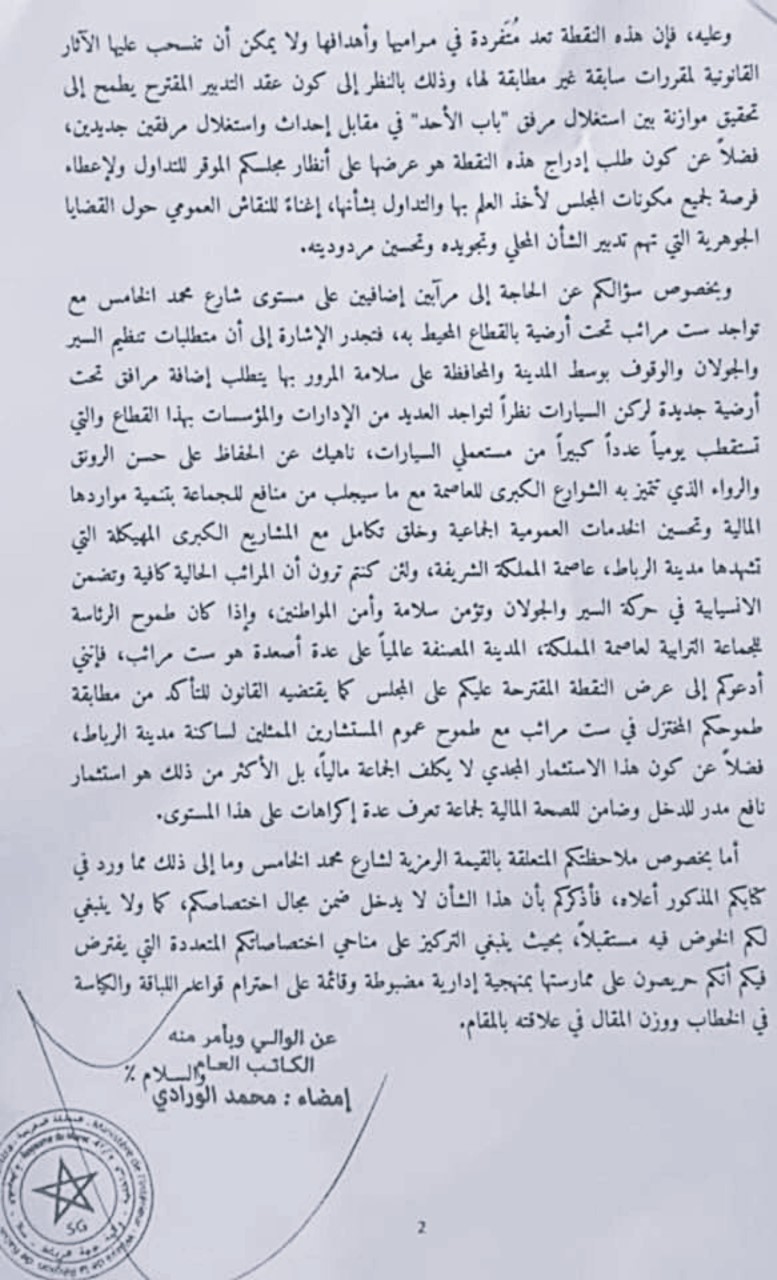 وعليه، فإن هذه النقطة تعد مُتَفردة في مراميها وأهدافها ولا يمكن أن تنسحب عليها الآثار
القانونية لمقررات سابقة غير مطابقة لها، وذلك بالنظر إلى كون عقد التدبير المقترح يطمح إلى
تحقيق موازنة بين استغلال مرفق "باب الأحد" في مقابل إحداث واستغلال مرفقين جديدين،
فضلاً عن كون طلب إدراج هذه النقطة هو عرضها على أنظار مجلسكم الموقر للتداول ولإعطاء
فرصة لجميع مكونات المجلس لأخذ العلم بها والتداول بشأنها، إغناءً للنقاش العمومي حول القضايا
الجوهرية التي تهم تدبير الشأن المحلي وتجويده وتحسين مردوديته.
وبخصوص سؤالكم عن الحاجة إلى مرآبين إضافيين على مستوى شارع محمد الخامس مع
تواجد ست مرائب تحت أرضية بالقطاع المحيط به، فتجدر الإشارة إلى أن متطلبات تنظيم السير
والجولان والوقوف بوسط المدينة والمحافظة على سلامة المرور بها يتطلب إضافة مرافق تحت
أرضية جديدة لركن السيارات نظراً لتواجد العديد من الإدارات والمؤسسات بهذا القطاع والتي
تستقطب يومياً عدداً كبيراً من مستعملي السيارات، ناهيك عن الحفاظ على حسن الرونق
والرواء الذي تتميز به الشوارع الكبرى للعاصمة مع ما سيجلب من منافع للجماعة بتنمية مواردها
المالية وتحسين الخدمات العمومية الجماعية وخلق تكامل مع المشاريع الكبرى المهيكلة التي
تشهدها مدينة الرباط، عاصمة المملكة الشريفة، ولئن كنتم ترون أن المرائب الحالية كافية وتضمن
الانسيابية في حركة السير والجولان وتؤمن سلامة وأمن المواطنين، وإذا كان طموح الرئاسة
للجماعة الترابية لعاصمة المملكة، المدينة المصنفة عالمياً على عدة أصعدة هو ست مرائب، فإنني
أدعوكم إلى عرض النقطة المقترحة عليكم على المجلس كما يقتضيه القانون للتأكد من مطابقة
طموحكم المختزل في ست مرائب مع طموح عموم المستشارين الممثلين لساكنة مدينة الرباط،
فضلاً عن كون هذا الاستثمار المجدي لا يكلف الجماعة مالياً، بل الأكثر من ذلك هو استثمار
نافع مدر للدخل وضامن للصحة المالية لجماعة تعرف عدة إكراهات على هذا المستوى.
أما بخصوص ملاحظتكم المتعلقة بالقيمة الرمزية لشارع محمد الخامس وما إلى ذلك مما ورد في
كتابكم المذكور أعلاه، فأذكركم بأن هذا الشأن لا يدخل ضمن مجال اختصاصكم، كما ولا ينبغي
لكم الخوض فيه مستقبلاً، بحيث ينبغي التركيز على مناحي اختصاصاتكم المتعددة التي يفترض
فيكم أنكم حريصون على ممارستها بمنهجية إدارية مضبوطة وقائمة على احترام قواعد اللباقة والكياسة
في الخطاب ووزن المقال في علاقته بالمقام.
عن الوالي وبأمر منه
الكاتب العام
والسلام ٪
إمضاء : محمد الورادي
Royaume du Maroc
Ministère de l'Intérieur
SG
2